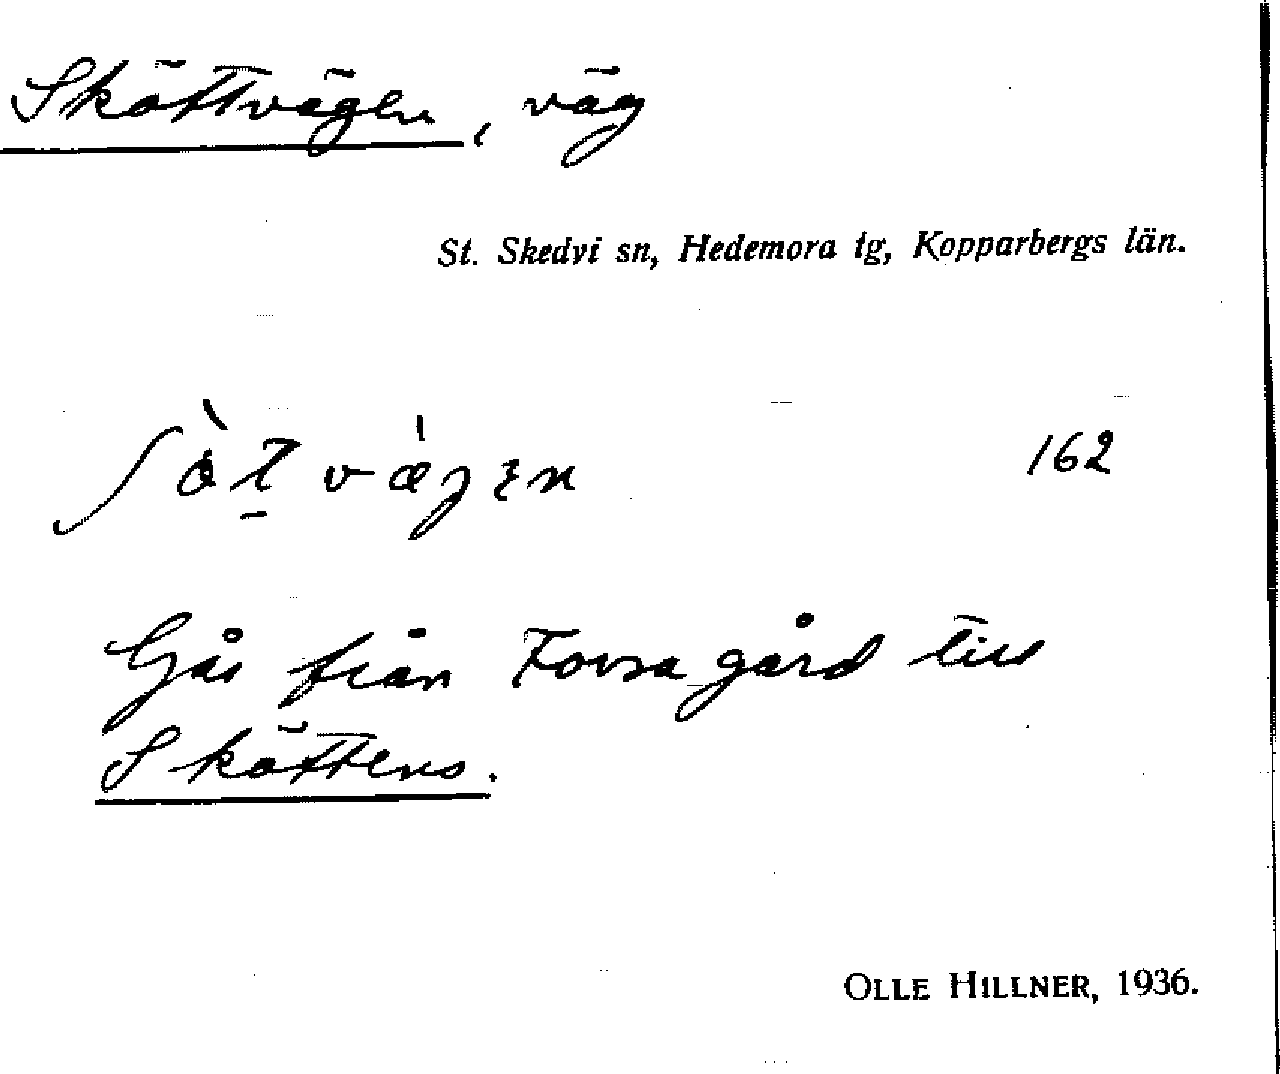 Skättvägen, väg
St. Skedvi sn, Hedemora tg, Kopparbergs län.
162
Går från Forsa gård till
Skättens.
OLLE HILLNER, 1936.